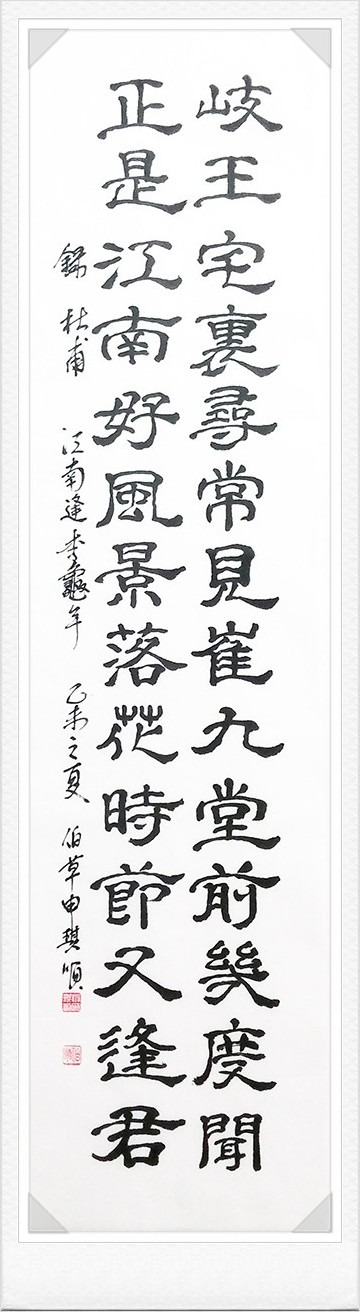 岐王宅裏尋常見崔九堂前幾度聞
正是江南好風景落花時節又逢君
錄杜甫 江南逢李龜年 乙未之夏 伯草申琪順